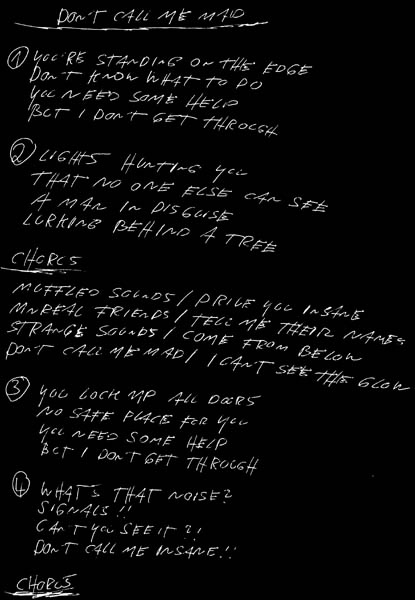 DON'T CALL ME MAD
① YOU'RE STANDING ON THE EDGE
DON'T KNOW WHAT TO DO
YOU NEED SOME HELP
BUT I DON'T GET THROUGH
② LIGHTS HUNTING YOU
THAT NO ONE ELSE CAN SEE
A MAN IN DISGUISE
LURKING BEHIND A TREE
CHORUS
MUFFLED SOUNDS / DRIVE YOU INSANE
UNREAL FRIENDS / TELL ME THEIR NAMES
STRANGE SOUNDS / COME FROM BELOW
DON'T CALL ME MAD / I CAN'T SEE THE GLOW
③ YOU LOCK UP ALL DOORS
NO SAFE PLACE FOR YOU
YOU NEED SOME HELP
BUT I DON'T GET THROUGH
④ WHAT'S THAT NOISE?
SIGNALS!!
CAN'T YOU SEE IT?!
DON'T CALL ME INSANE!!
CHORUS